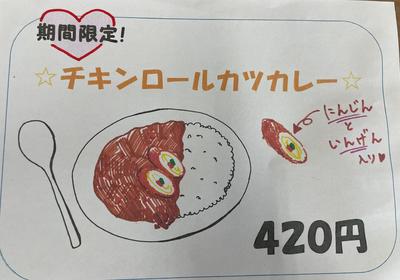 期間限定!
☆チキンロールカツカレー☆
にんじん
と
いんげん
入り♥
420円